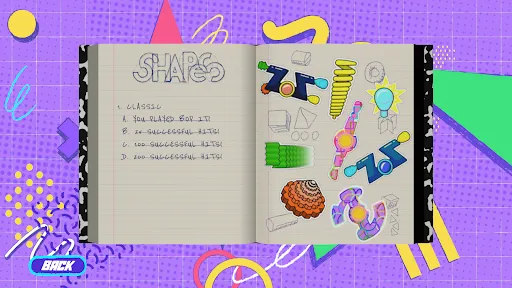 SHAPES
1. CLASSIC
A. YOU PLAYED BOP IT!
B. 20 SUCCESSFUL HITS!
C. 100 SUCCESSFUL HITS!
D. 200 SUCCESSFUL HITS!
BACK